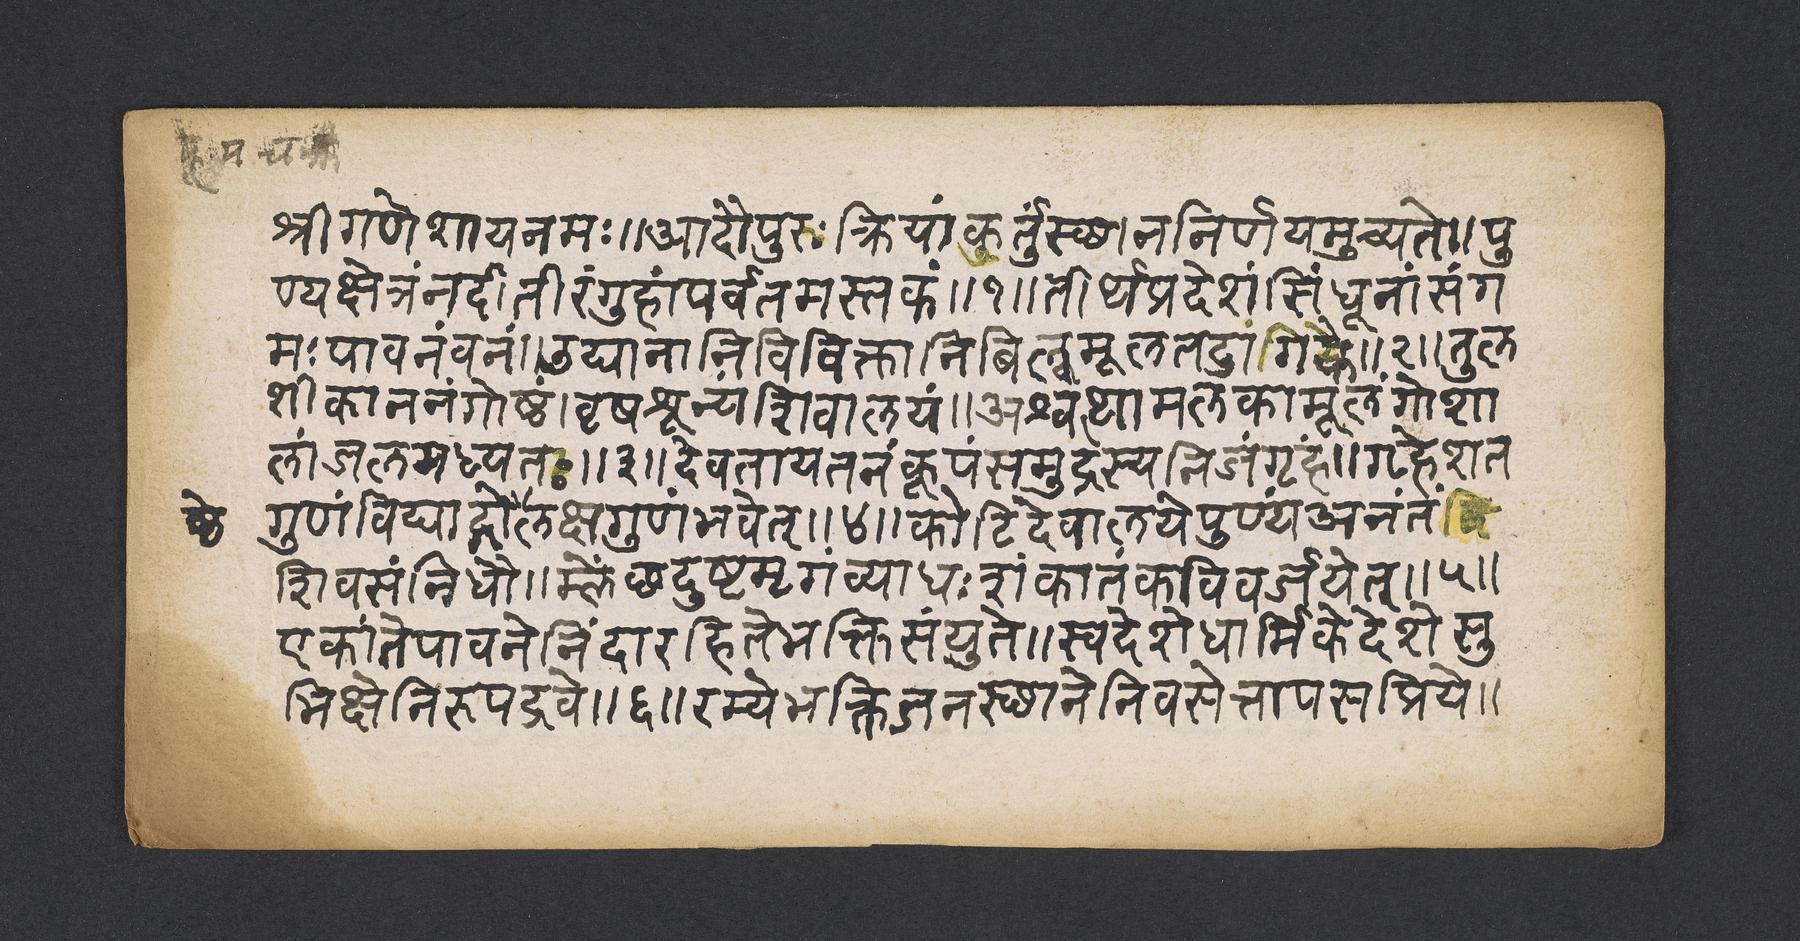 श्रीगणेशायनमः॥आदौपुरःक्रियांकर्तुंस्थाननिर्णयमुच्यते॥पु
ण्यक्षेत्रंनदीतीरंगुहांपर्वतमस्तकं॥१॥तीर्थप्रदेशंसिंधूनांसंग
मःपावनंवनं॥उद्यानानिविविक्तानिबिल्वमूलतटां॥२॥तुल
शीकाननंगोष्ठं।वृषशून्यंशिवालयं॥अश्वत्थामलकामूलंगोशा
लांजलमध्यतः॥३॥देवतायतनंकूपंसमुद्रस्यनिजंगृहं॥गृहेशत
गुणंविद्याद्गोलक्षगुणंभवेत्॥४॥कोटिदेवालयेपुण्यंअनंतं
ष्ठे
शिवसंनिधौ॥म्लेंछदुष्टमृगंव्याधःशंकातंकविवर्जयेत्॥५॥
एकांतेपावनेनिंदारहितेभक्तिसंयुते॥स्वदेशेधार्मिकेदेशेसु
भिक्षेनिरूपद्रवे॥६॥रम्येभक्तिजनस्थानेनिवसेत्तापसप्रिये॥